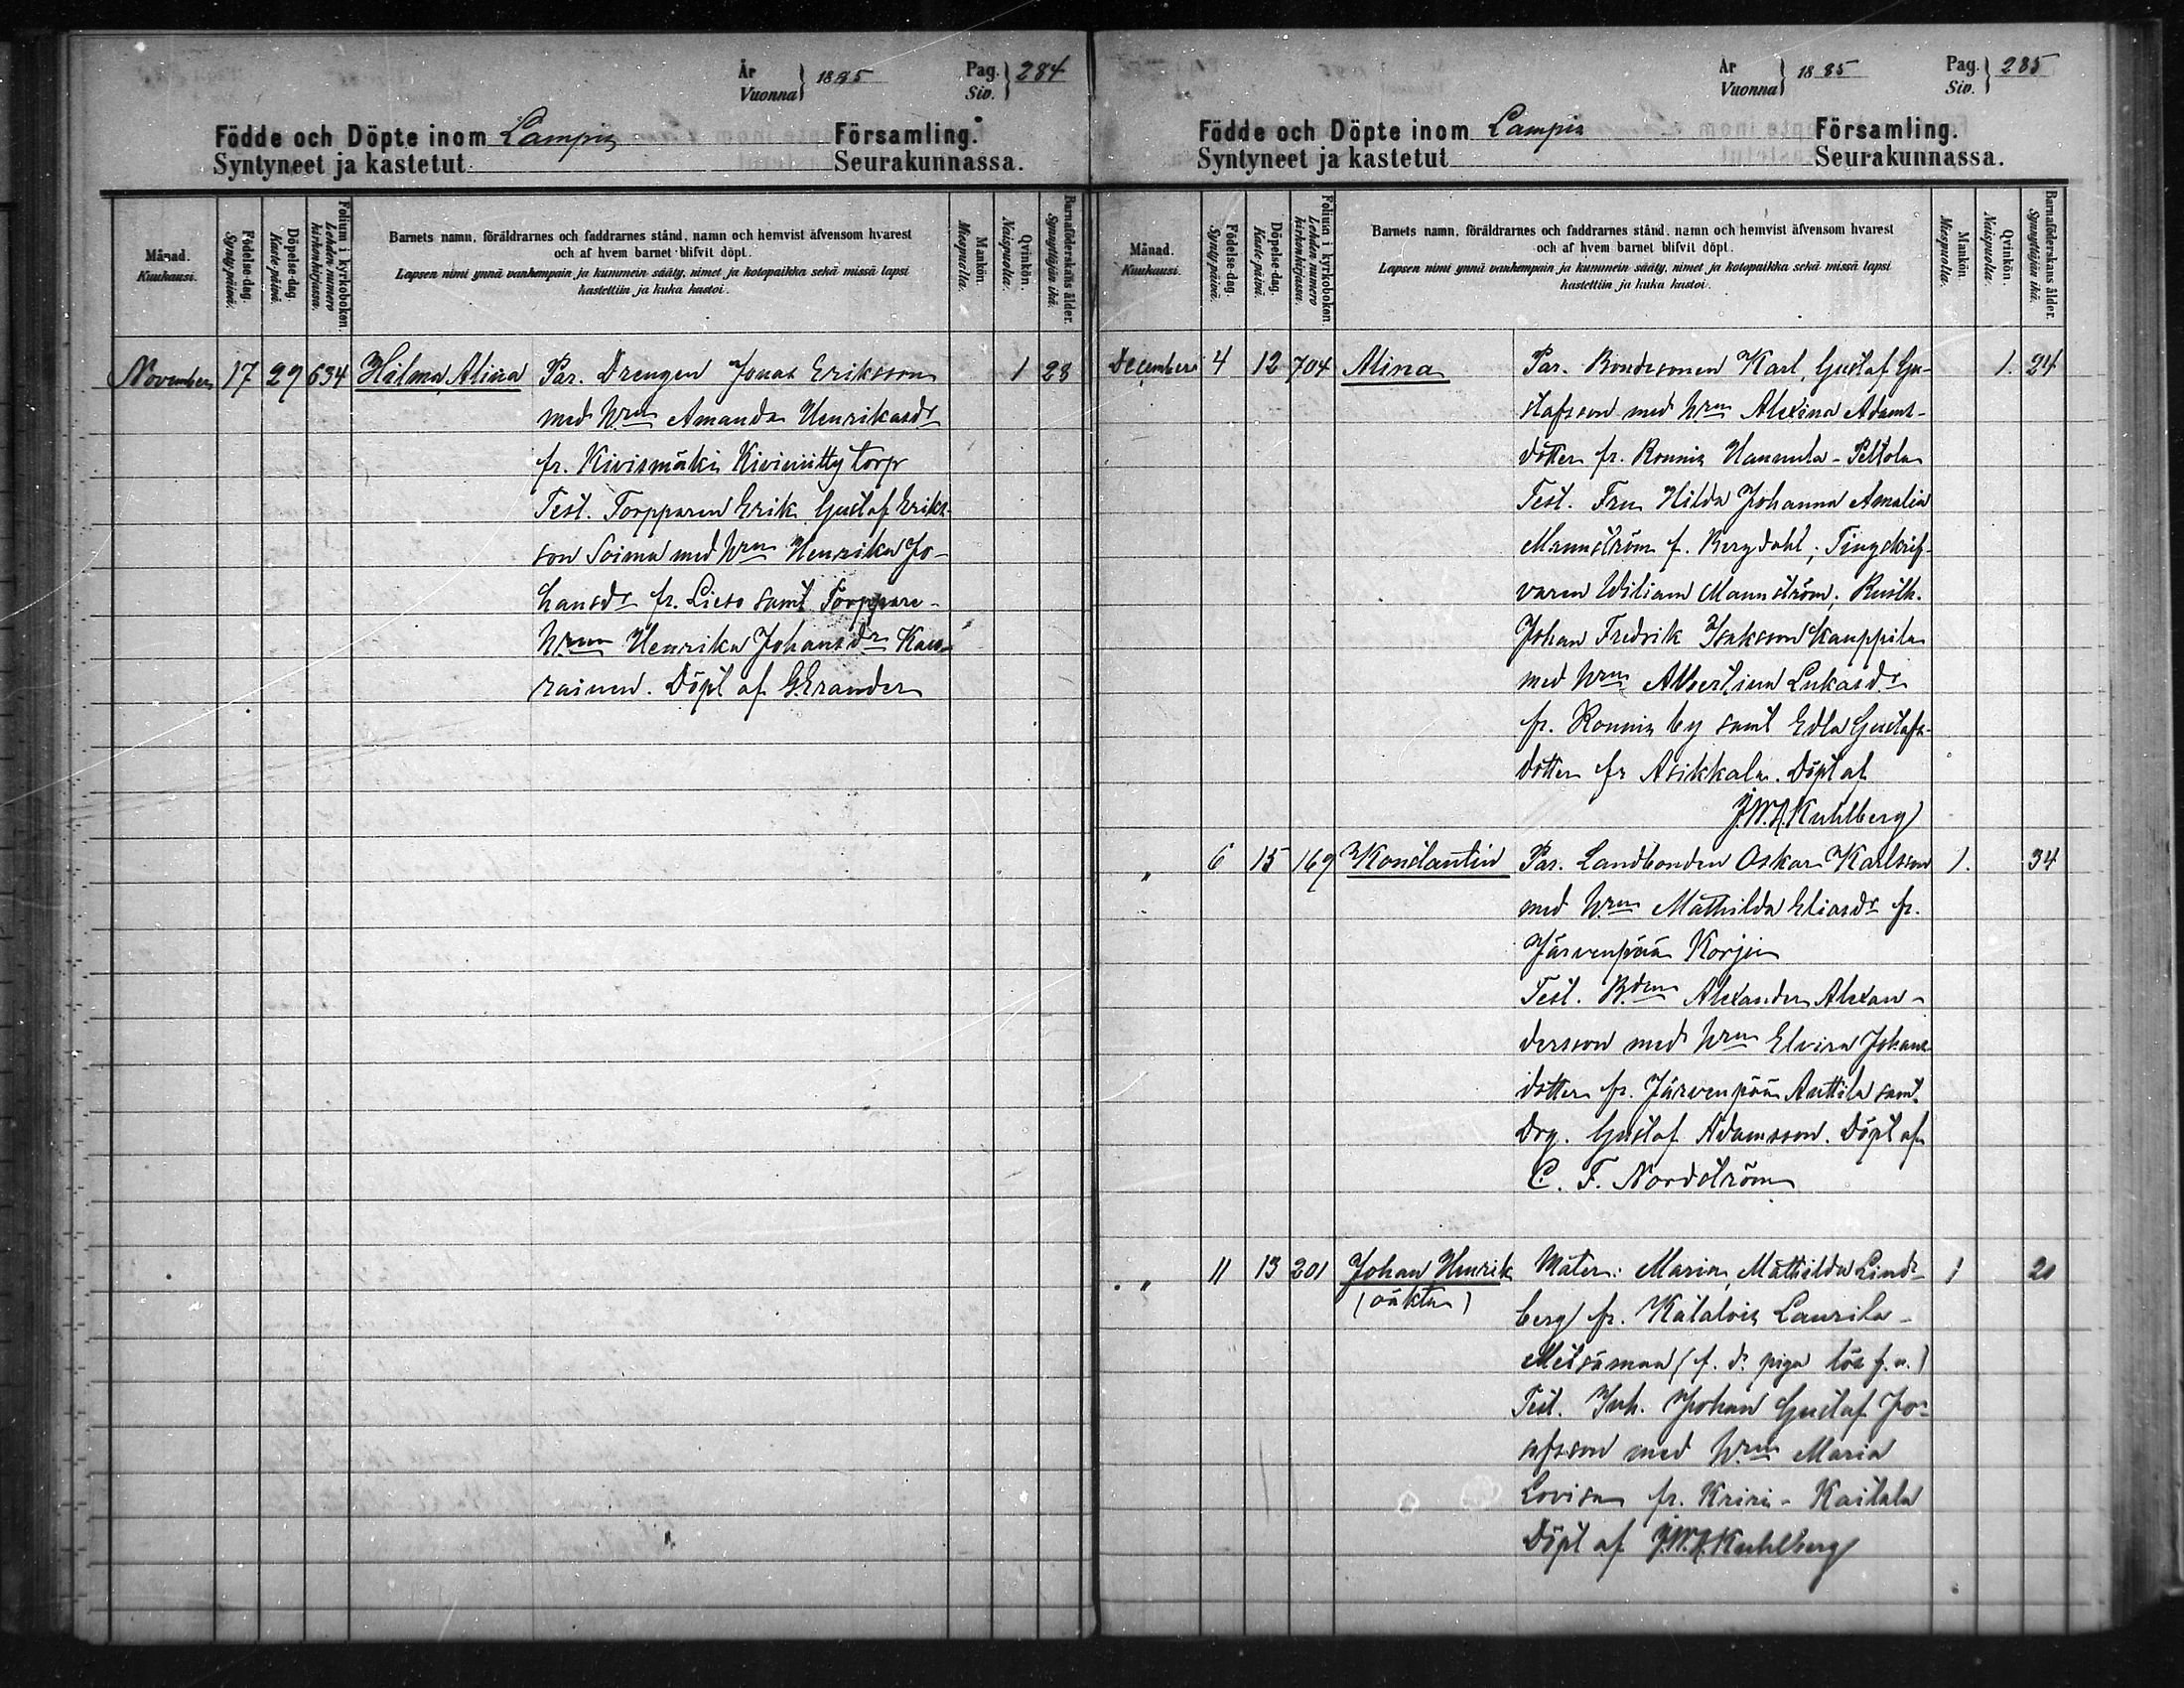 År
Vuonna } 1885 Pag. Siv. } 284
Födde och Döpte inom Lampis Församling.
Syntyneet ja kastetut Seurakunnassa.
Månad. Kuukausi.
Födelse-dag. Synty-päivä.
Döpelse-dag. Kaste-päivä.
Folium i kyrkoboken. Lehden numero kirkonkirjassa.
Barnets namn, föräldrarnes och faddrarnes stånd, namn och hemvist äfvensom hvarest
och af hvem barnet blifvit döpt.
Lapsen nimi ynnä vanhempain ja kummein sääty, nimet ja kotopaikka sekä missä lapsi
kastettiin ja kuka kastoi.
Mankön. Miespuolta.
Qvinkön. Naispuolta.
Barnaföderskans ålder. Synnyttäjän ikä.
November 17 29 634 Hilma Alina Par. Drengen Jonas Eriksson 1 28
med h:run Amanda Henriksdr
fr. Kivismäki Kiviniitty torp
Test. Torpparen Erik Gustaf Eriks-
son Soima med h:run Henrika Jo-
hansdr fr. Lieso samt Torppare-
h:run Henrika Johansdr Kau-
rainen. Döpt af G. Erander
År
Vuonna } 1885 Pag. Siv. } 285
Födde och Döpte inom Lampis Församling.
Syntyneet ja kastetut Seurakunnassa.
Månad. Kuukausi.
Födelse-dag. Synty-päivä.
Döpelse-dag. Kaste-päivä.
Folium i kyrkoboken. Lehden numero kirkonkirjassa.
Barnets namn, föräldrarnes och faddrarnes stånd, namn och hemvist äfvensom hvarest
och af hvem barnet blifvit döpt.
Lapsen nimi ynnä vanhempain ja kummein sääty, nimet ja kotopaikka sekä missä lapsi
kastettiin ja kuka kastoi.
Mankön. Miespuolta.
Qvinkön. Naispuolta.
Barnaföderskans ålder. Synnyttäjän ikä.
December 4 12 704 Alina Par. Bondesonen Karl Gustaf Gu- 1. 24
stafsson med h:run Alexina Adams-
dotter fr. Ronnis Hannula-Peltola
Test. Fru Hilda Johanna Amalia
Mannström f. Bergdahl; Tingskrif-
varen Wiliam Mannström; Rusth.
Johan Fredrik Isaksson Kauppila
med h:run Albertina Lukasdr
fr. Ronnis by samt Edla Gustafs-
dotter fr Asikkala. Döpt af
J.W.A. Kuhlberg
" 6 15 169 Konstantin Par. Landbonden Oskar Karlsson 1. 34
med h:run Mathilda Eliasdr fr.
Järvenpää Korjin
Test. B:den Alexander Alexan-
dersson med h:run Elvira Johans-
dotter fr. Järvenpää Anttila samt
Drg. Gustaf Adamsson. Döpt af
C. F. Nordström
" 11 13 201 Johan Henrik Mater: Maria Mathilda Lind- 1 20
(oäkta) berg fr. Kätalois Laurila-
Metsämaa (f. d. piga lös f. n.)
Test. Inh. Johan Gustaf Jo-
sefsson med h:run Maria
Lovisa fr. Kriri-Kaitala
Döpt af J.W.A. Kuhlberg